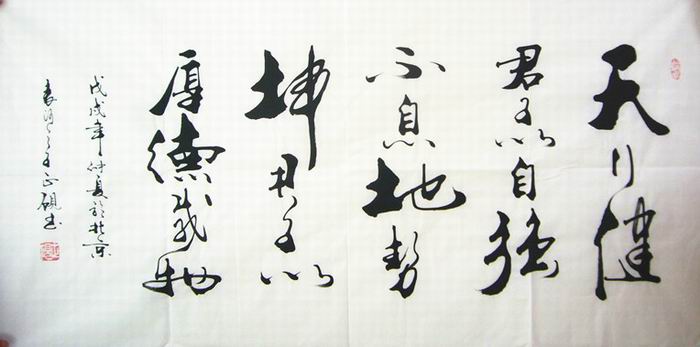 天行健
君子以自强
不息地势
坤君子以
厚德载物
戊戌年仲夏於北京